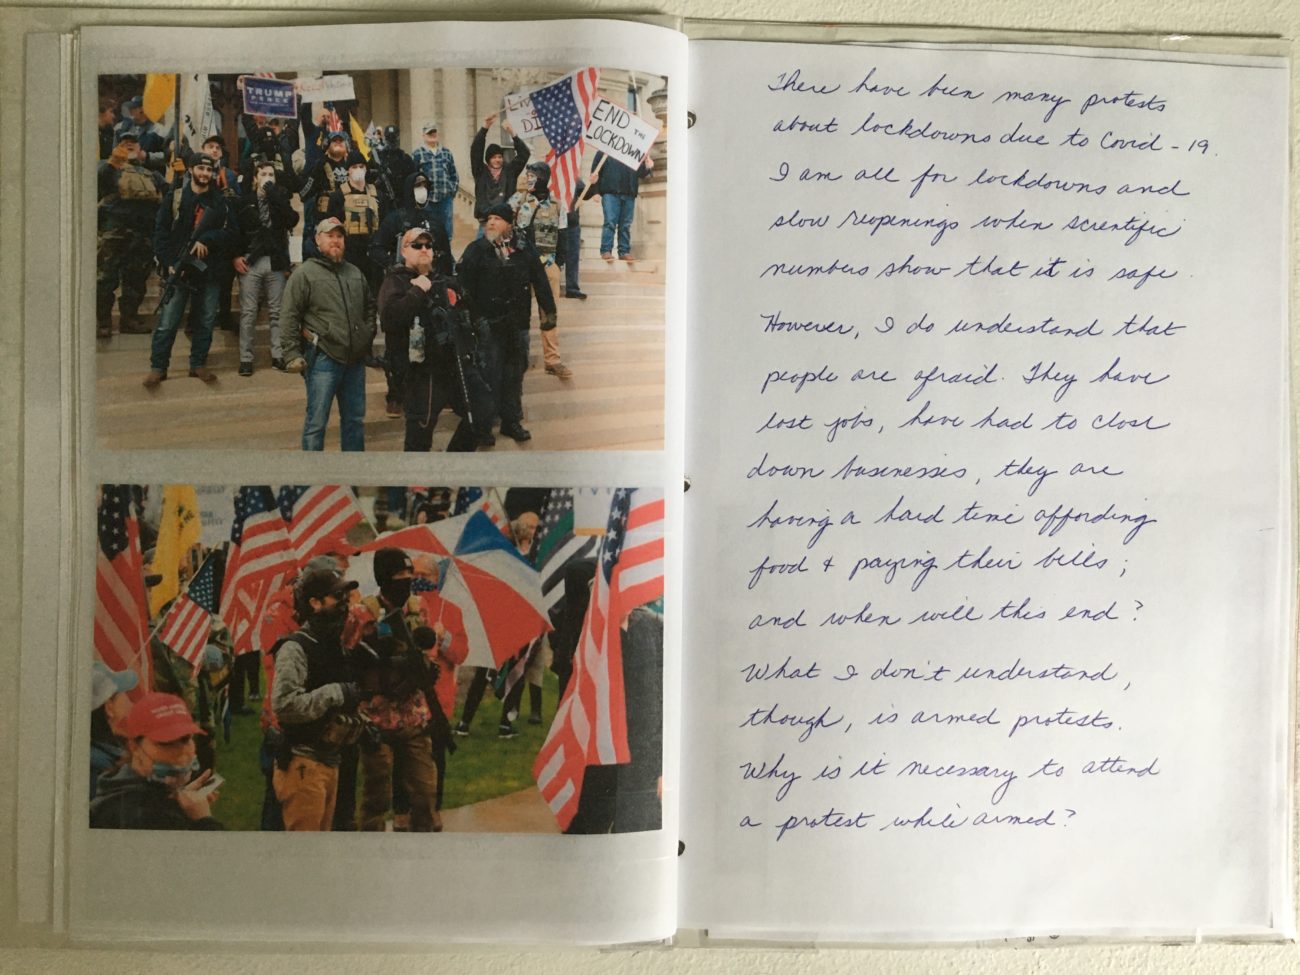 TRUMP
PENCE
END
THE
LOCKDOWN
There have been many protests
about lockdowns due to Covid-19.
I am all for lockdowns and
slow reopenings when scientific
numbers show that it is safe.
However, I do understand that
people are afraid. They have
lost jobs, have had to close
down businesses, they are
having a hard time affording
food + paying their bills;
and when will this end?
What I don't understand,
though, is armed protests.
Why is it necessary to attend
a protest while armed?